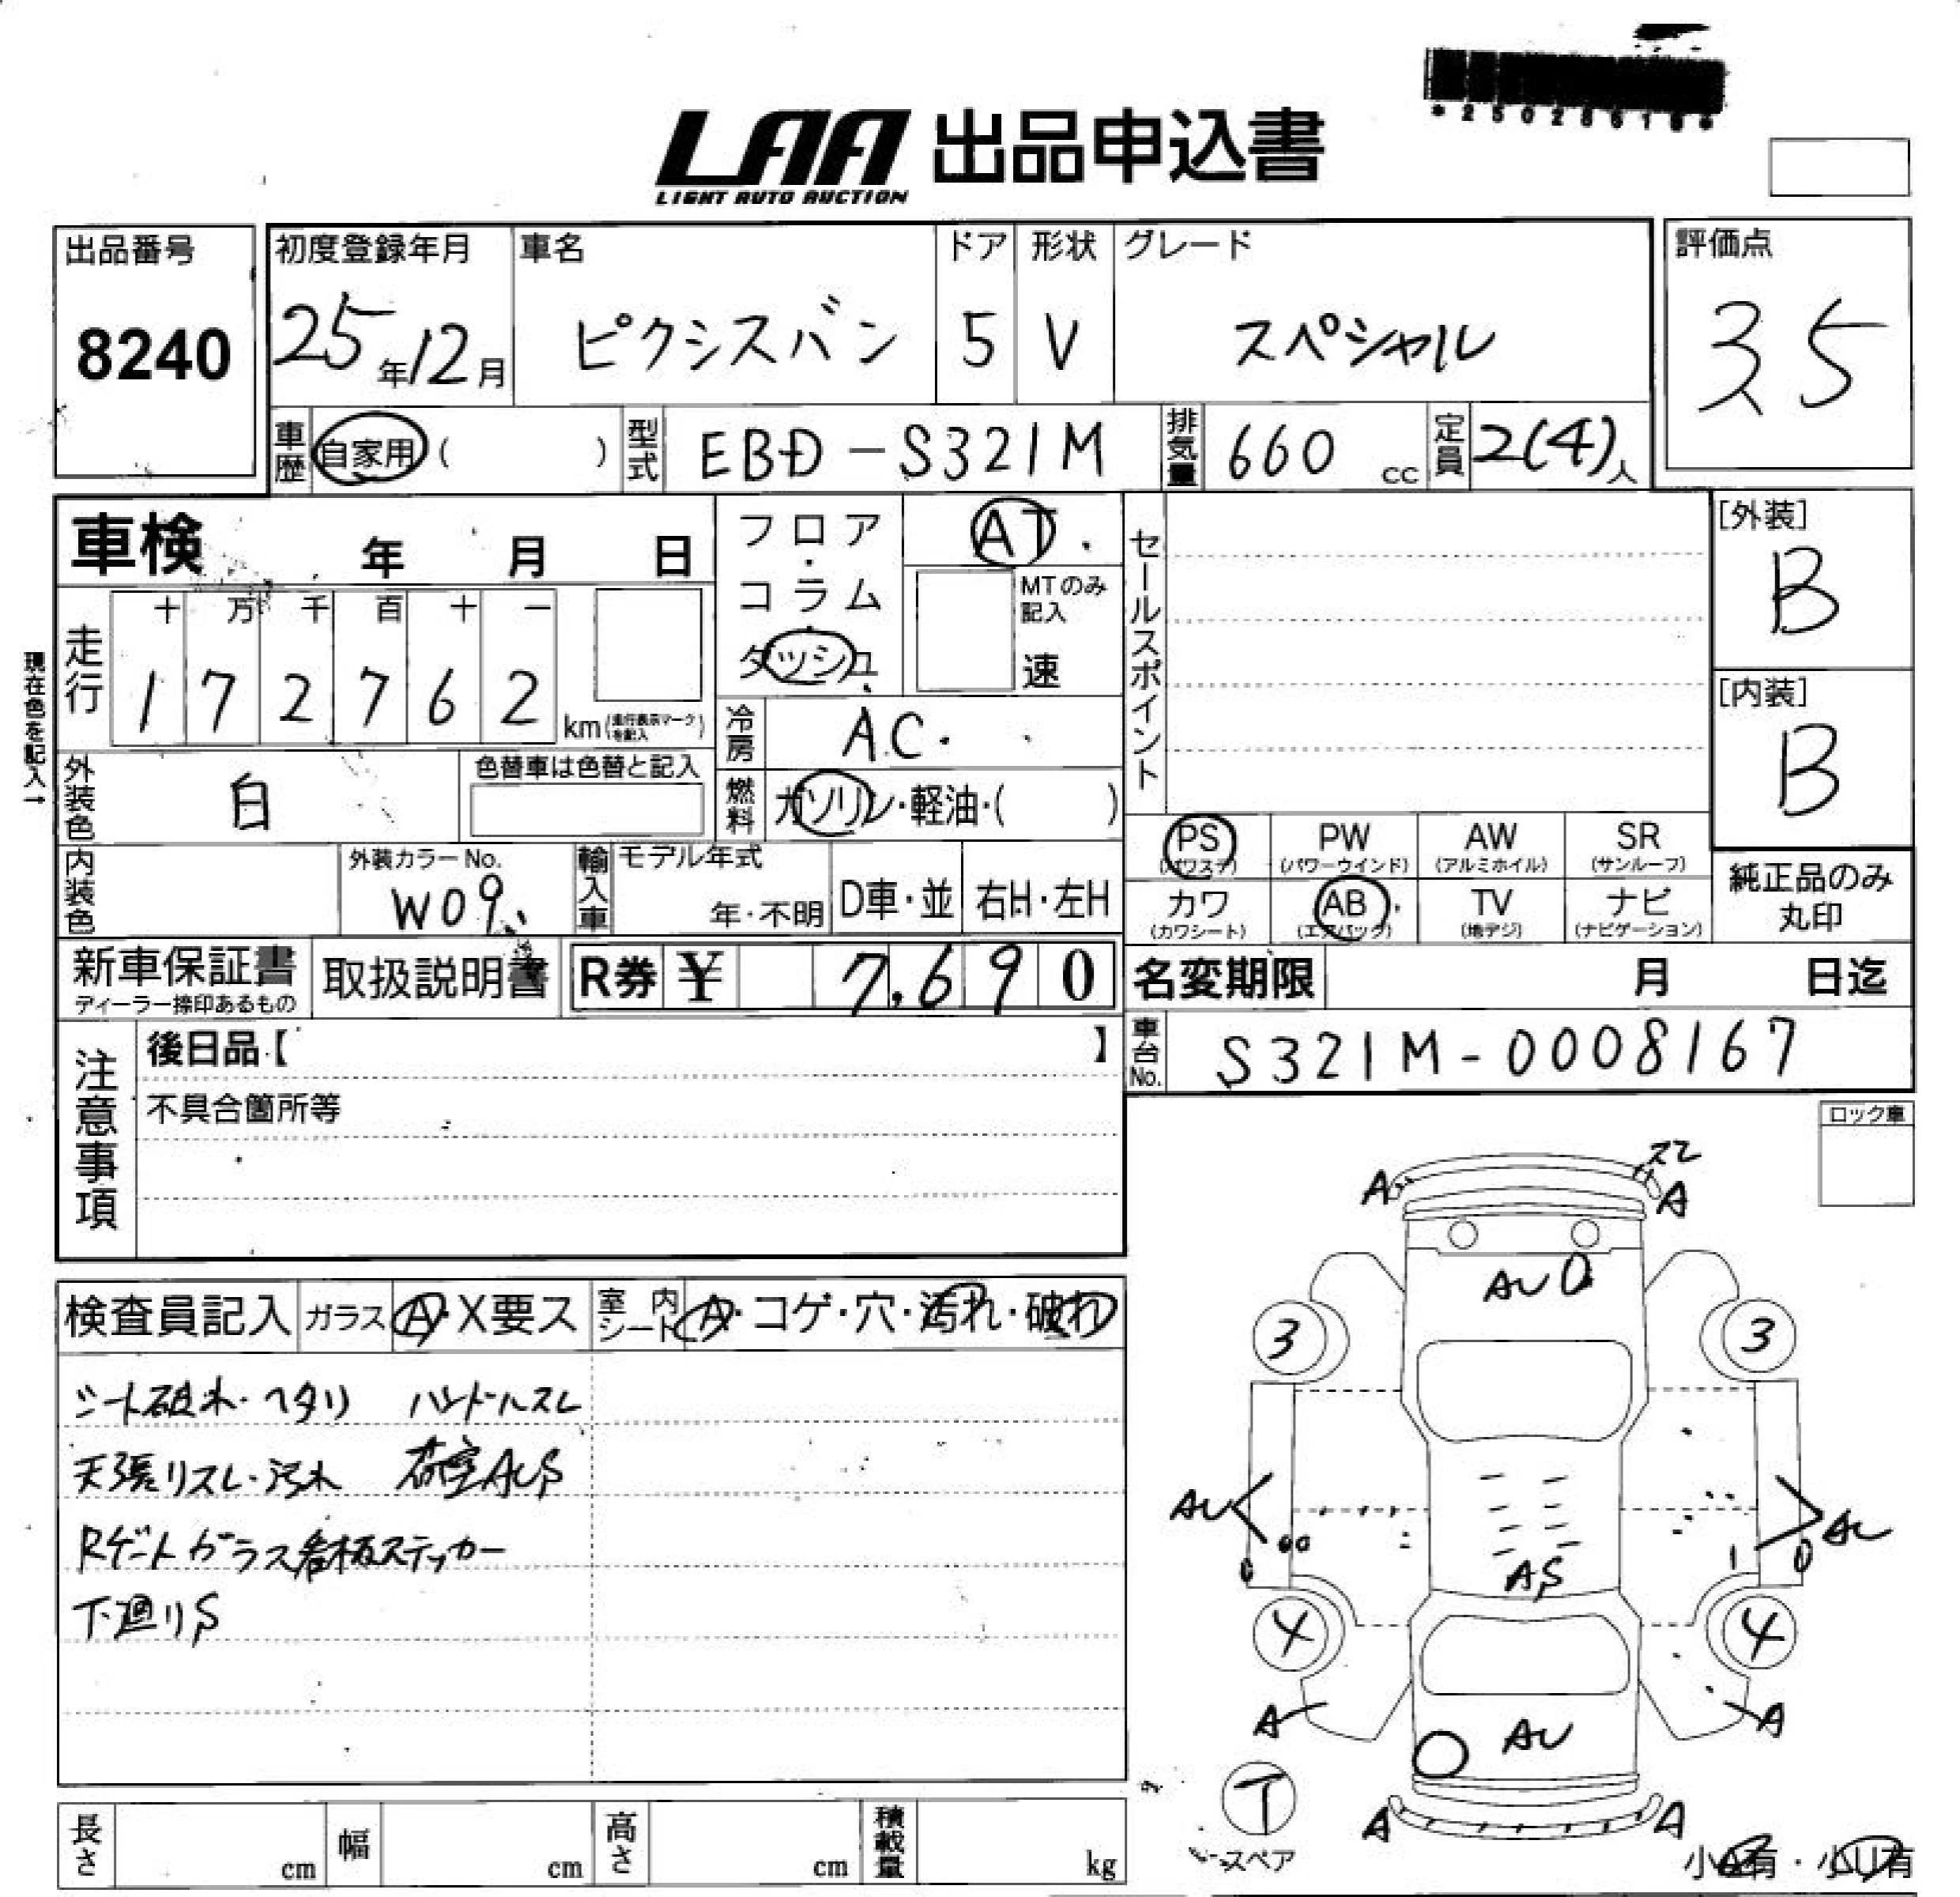 *25028618*
LAA 出品申込書
LIGHT AUTO AUCTION
出品番号 初度登録年月 車名 ドア 形状 グレード 評価点
8240 25年12月 ピクシスバン 5 V スペシャル 3.5
車歴 自家用 ( ) 型式 EBD-S321M 排気量 660 cc 定員 2(4)人
車検 年 月 日 フロア・コラム・ダッシュ AT. セールスポイント [外装] B
MTのみ記入 速
現在色を記入→
走行 十 万 千 百 十 一
1 7 2 7 6 2 km(走行表示マークを記入)
[内装] B
冷房 AC.
外装色 白 色替車は色替と記入 燃料 ガソリン・軽油・( )
PS (パワステ) PW (パワーウインド) AW (アルミホイル) SR (サンルーフ)
内装色 外装カラーNo. W09 輸入車 モデル年式 年・不明 D車・並 右H・左H
カワ (カワシート) AB (エアバック) TV (地デジ) ナビ (ナビゲーション) 純正品のみ丸印
新車保証書 ディーラー捺印あるもの 取扱説明書 R券 ¥ 7,690 名変期限 月 日迄
注意事項 後日品【 】 車台No. S321M-0008167
不具合箇所等
ロック車
検査員記入 ガラス A・X要ス 室内シート A・コゲ・穴・汚れ・破れ
シート破れ・ヘタリ ハンドルスレ
天張リスレ・汚れ 荷室AUS
Rゲートガラス看板ステッカー
下廻りS
A スレ A
AU
3 3
AU AU
AS
4 4
A A
AU
T
スペア
A A
小A有・小U有
長さ cm 幅 cm 高さ cm 積載量 kg